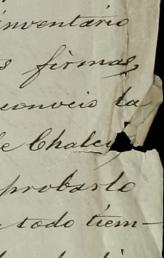 inventario
s firmas,
conveio la
de Chalco
probarlo
a todo tiem-